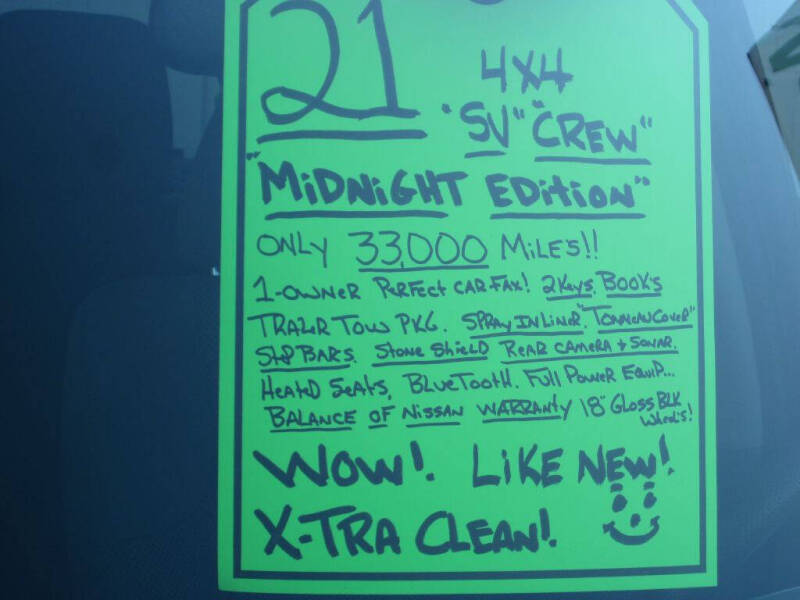 21 4X4
"SV" "CREW"
"MiDNiGHT EDition"
ONLY 33,000 MiLE'S!!
1-OWNER PERFECT CARFAX! 2 Keys, BOOK'S
TRALR TOW PKG. SPRAY IN LiNER, "TONNEAU COVER"
StP BARS, StONE SHiELD REAR CAMERA + SONAR,
HEAtD SEAtS, BLUETOOTH. FULL POWER EQUIP...
BALANCE OF NiSSAN WARRANty 18" GLOSS BLK
WheeL'S!
WOW! LiKE NEW!
X-TRA CLEAN!